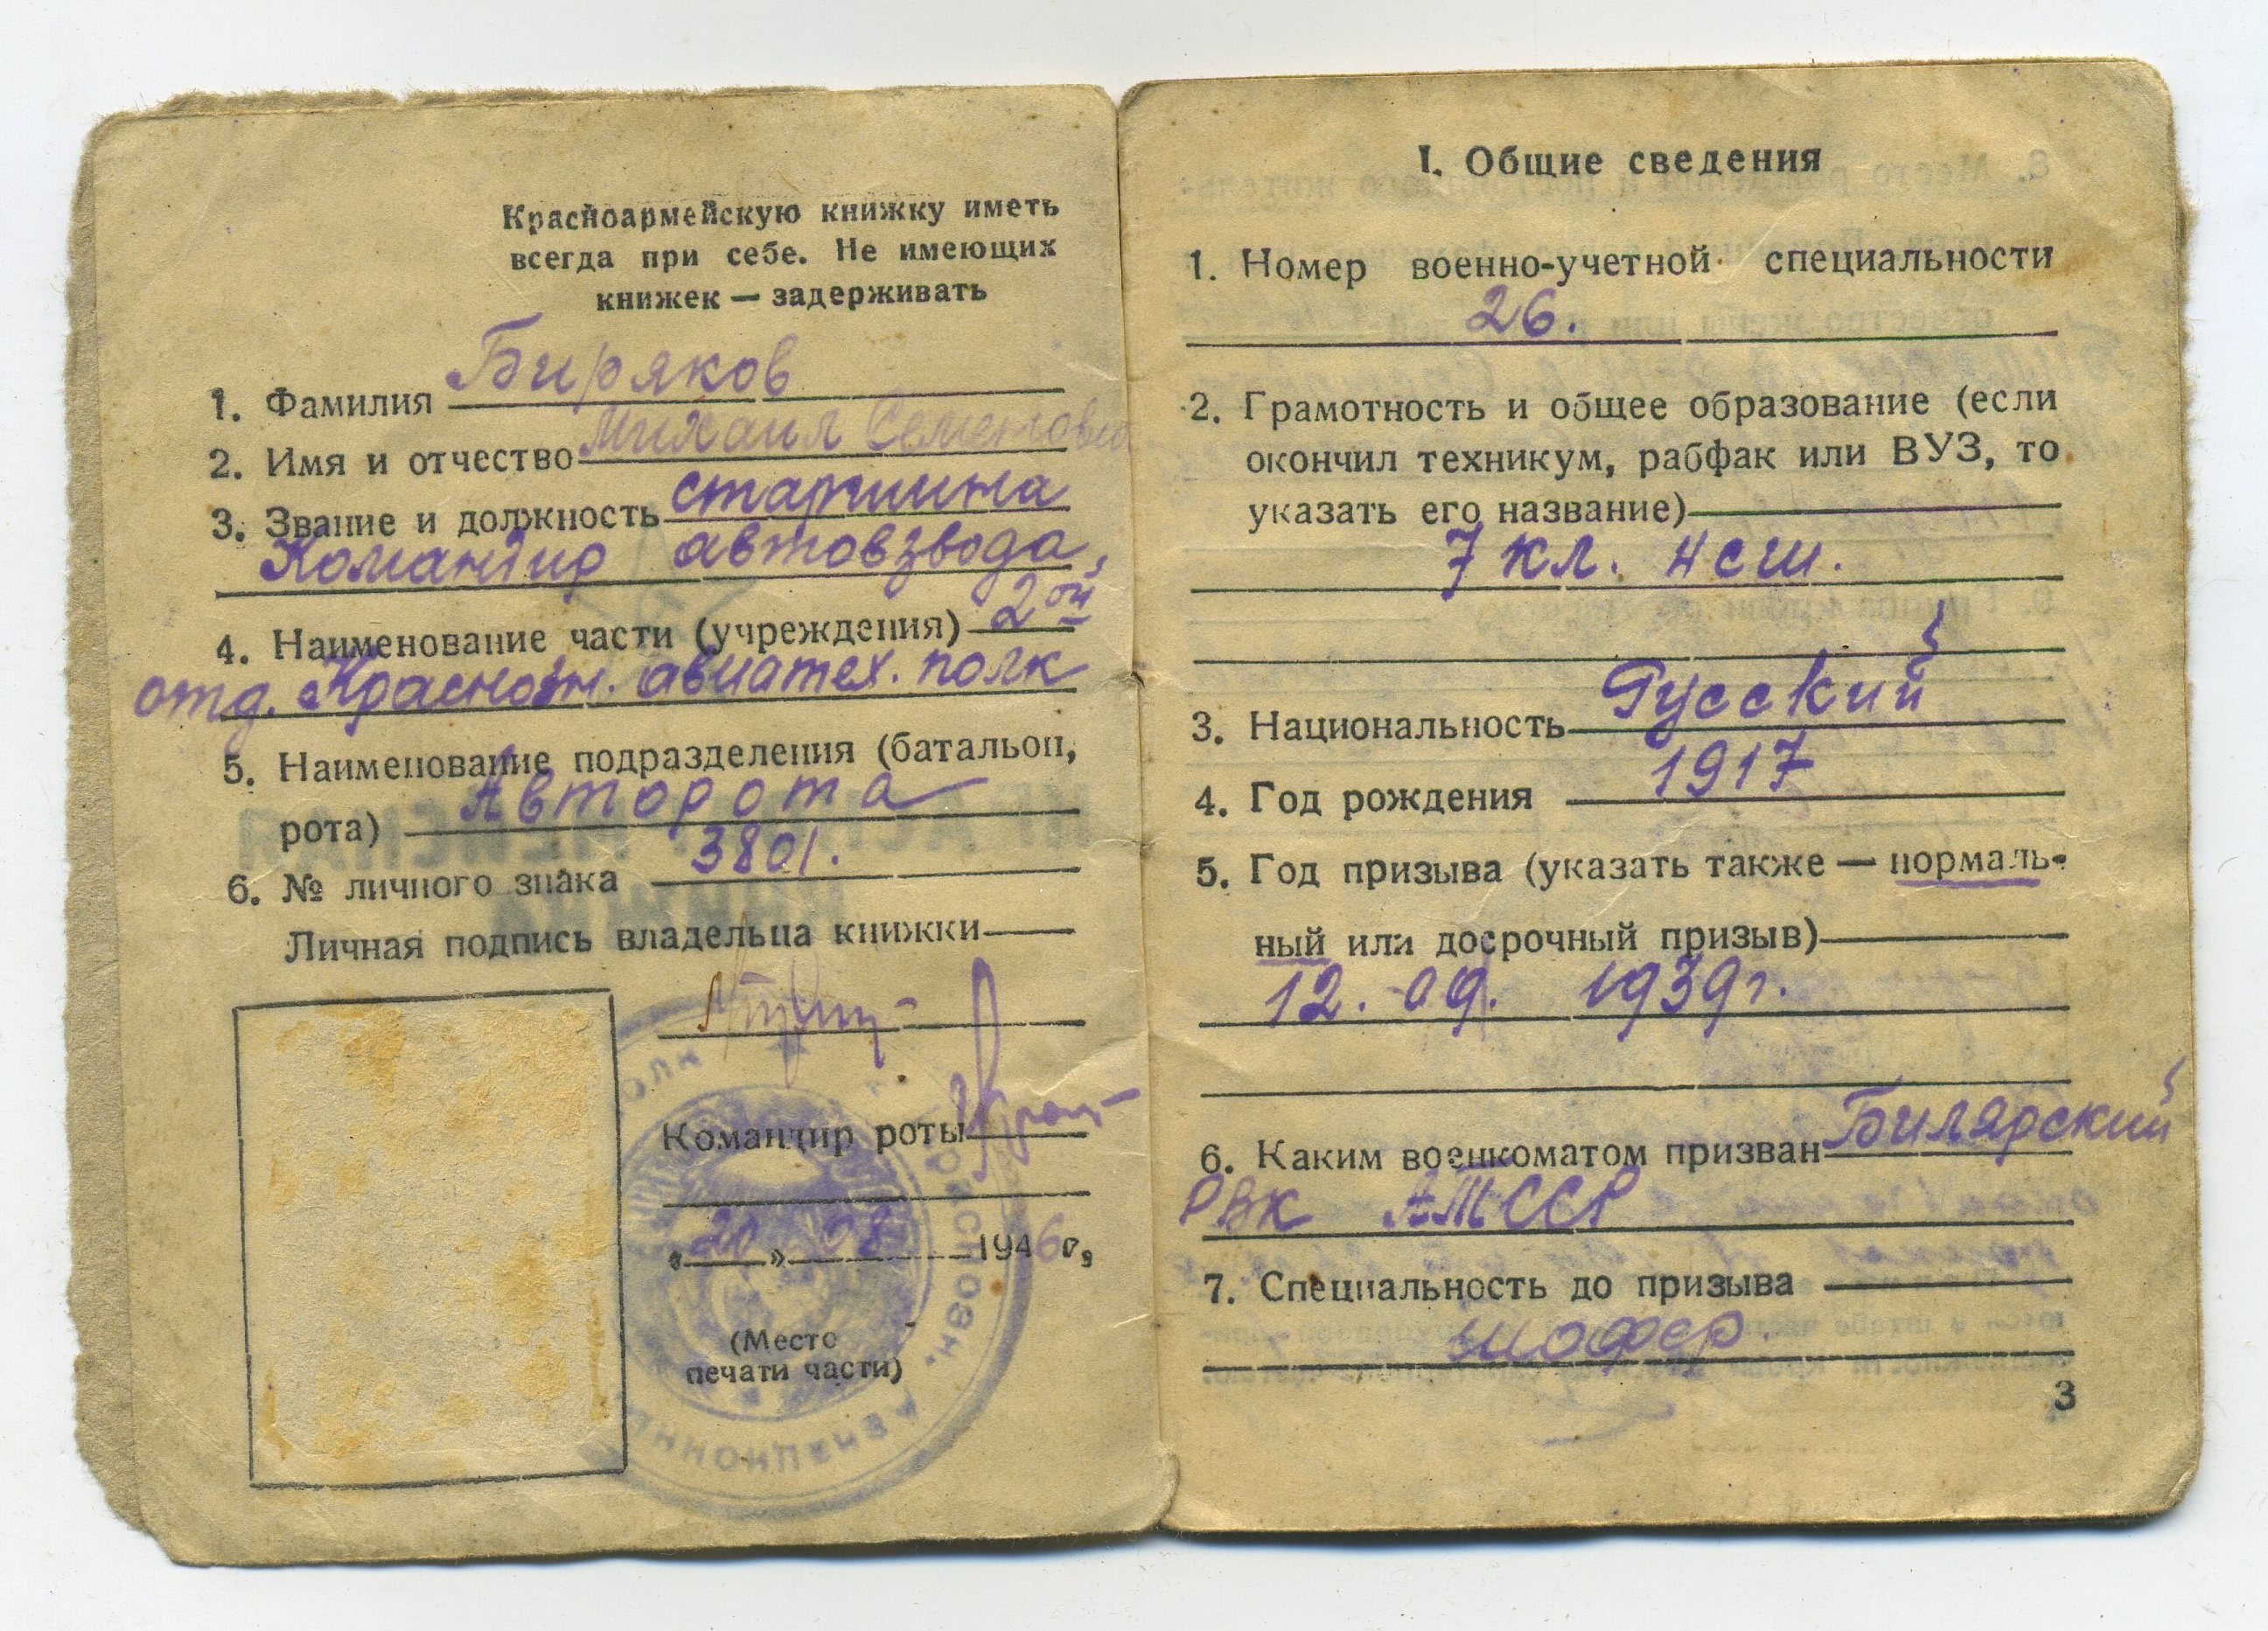 Красноармейскую книжку иметь
всегда при себе. Не имеющих
книжек — задерживать
1. Фамилия Биряков
2. Имя и отчество Михаил Семенович
3. Звание и должность старшина
Командир автовзвода,
4. Наименование части (учреждения) 2ой
отд. Краснозн. авиатех. полк
5. Наименование подразделения (батальон,
рота) Авторота
6. № личного знака 3801.
Личная подпись владельца книжки
Командир роты
«20» 08 1946 г,
(Место
печати части)
КРАСНОЗН. АВИАЦИОННЫЙ
I. Общие сведения
1. Номер военно-учетной специальности
26.
2. Грамотность и общее образование (если
окончил техникум, рабфак или ВУЗ, то
указать его название)
7 кл. нсш.
3. Национальность Русский
4. Год рождения 1917
5. Год призыва (указать также — нормаль-
ный или досрочный призыв)
12. 09. 1939г.
6. Каким военкоматом призван Билярский
РВК АТССР
7. Специальность до призыва
шофер.
3